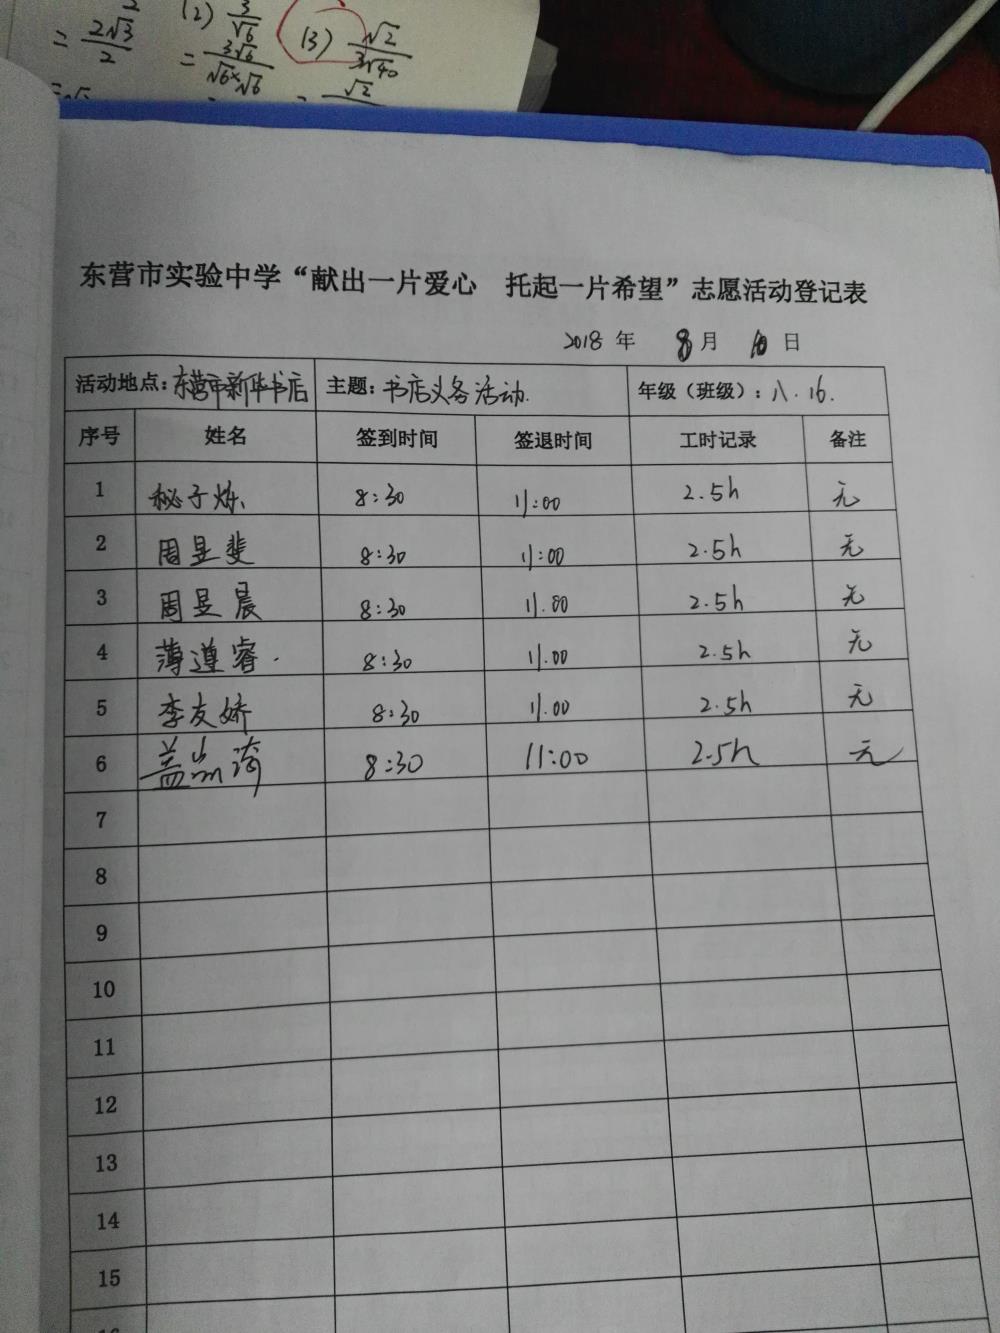 (2) 3/√6
= 2√3/2
= 3√6/√6×√6
(3) √2/3√40
√2
东营市实验中学“献出一片爱心 托起一片希望”志愿活动登记表
2018 年 8 月 10 日
活动地点：东营市新华书店 主题：书店义务活动. 年级（班级）：八.16.
序号 姓名 签到时间 签退时间 工时记录 备注
1 秘子烁 8:30 11:00 2.5h 无
2 周昱斐 8:30 11:00 2.5h 无
3 周昱晨 8:30 11.00 2.5h 无
4 薄遵睿. 8:30 11.00 2.5h 无
5 李友娇 8:30 11.00 2.5h 无
6 盖 8:30 11:00 2.5h 无
7
8
9
10
11
12
13
14
15